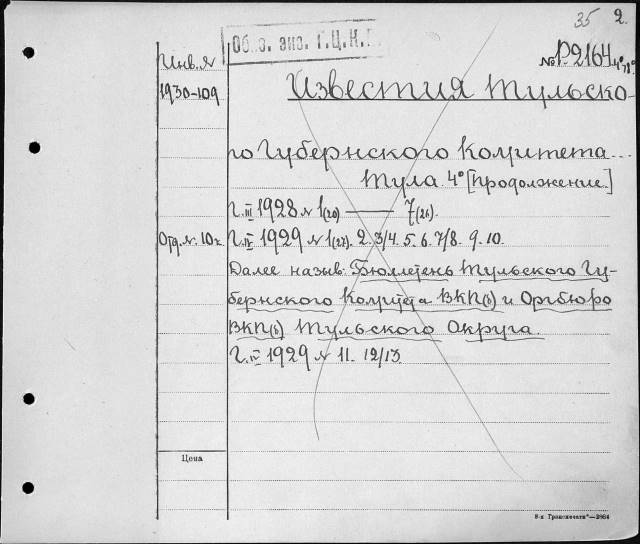 35 2.
Обяз. экз. Г.Ц.К.
Инв. №
№ P-2164 4°
1930-109
Известия Тульско-
го Губернского Комитета...
Тула. 4° [продолжение]
Г. III 1928 № 1(20) — 7(26).
Отд. №. 10к.
Г. IV 1929 № 1(27). 2. 3/4. 5. 6. 7/8. 9. 10.
Далее назыв. Бюллетень Тульского Гу-
бернского Комитета ВКП(б) и Оргбюро
ВКП(б) Тульского Округа.
Г. IV 1929 № 11. 12/13.
Цена
8-я Транспечати"—2864